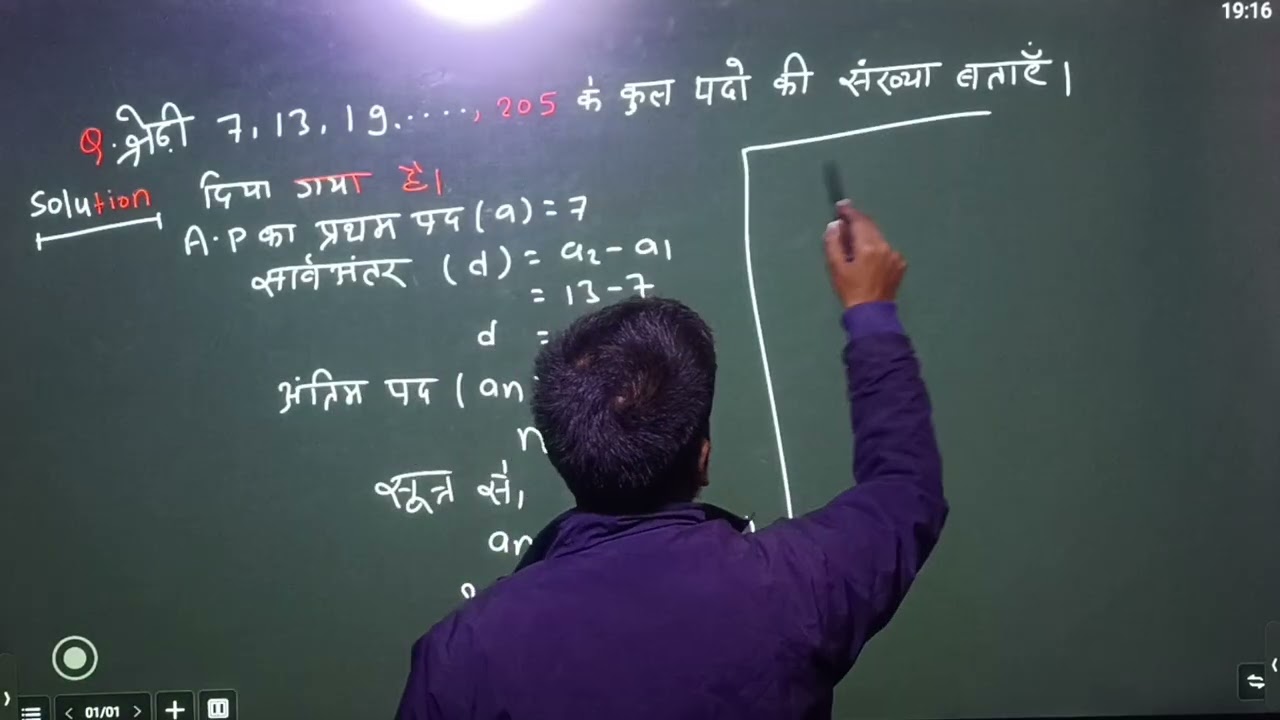 19:16
Q. श्रेढ़ी 7, 13, 19....., 205 के कुल पदो की संख्या बताएँ।
Solution दिया गया है।
A.P का प्रथम पद (a) = 7
सार्वअंतर (d) = a₂ - a₁
= 13 - 7
d =
अंतिम पद (an
n
सूत्र से,
an
01/01